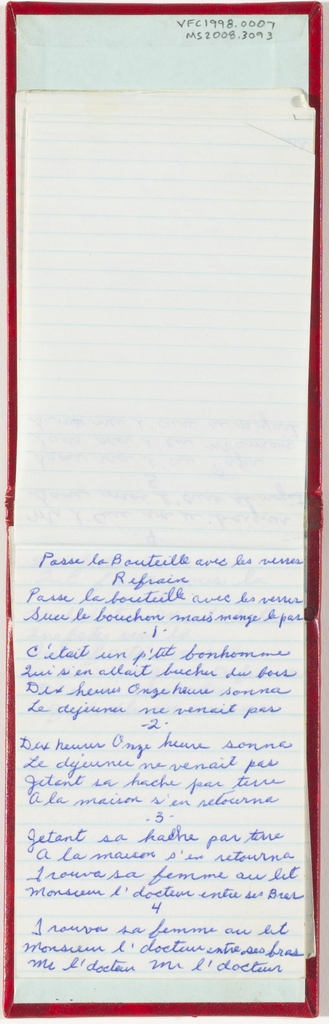 VFC1998.0007
MS2008.3093
Passe la Bouteille avec les verres
Refrain
Passe la bouteille avec les verres
Suce le bouchon mais mange le pas
-1-
C'était un p'tit bonhomme
Qui s'en allait bucher du bois
Dix heures Onze heure sonna
Le dejeuner ne venait pas
-2-
Dix heures Onze heure sonna
Le dejeuner ne venait pas
Jetant sa hache par terre
A la maison s'en retourna
-3-
Jetant sa hache par terre
A la maison s'en retourna
Trouva sa femme au lit
Monsieur l'docteur entre ses Bras
4
Trouva sa femme au lit
Monsieur l'docteur entre ses bras
Mr l'docteur Mr l'docteur